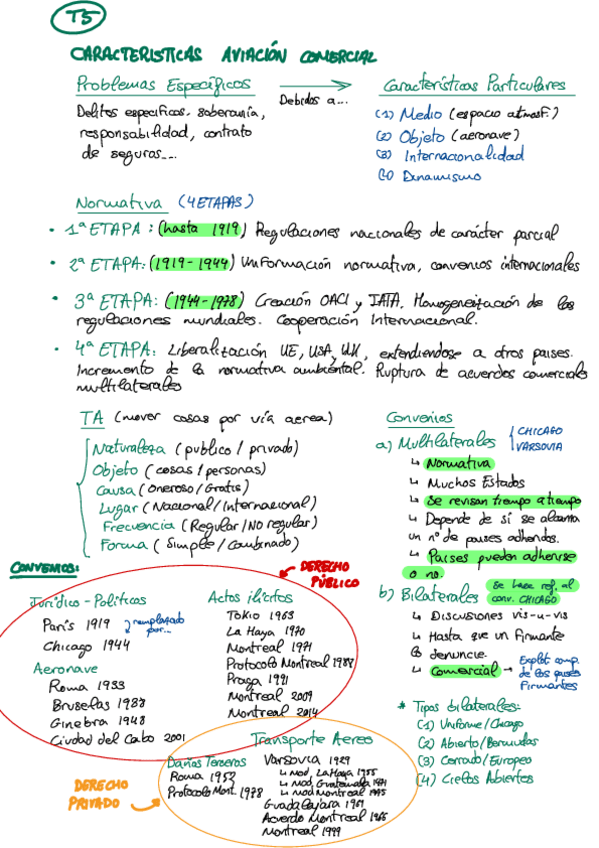 T5
CARACTERISTICAS AVIACIÓN COMERCIAL
Problemas Específicos
Debidos a...
Características Particulares
Delitos especificos. soberanía,
responsabilidad, contrato
de seguros...
(1) Medio (espacio atmosf.)
(2) Objeto (aeronave)
(3) Internacionalidad
(4) Dinamismo
Normativa (4 ETAPAS)
• 1ª ETAPA: (hasta 1919) Regulaciones nacionales de carácter parcial
• 2ª ETAPA: (1919-1944) Uniformación normativa, convenios internacionales
• 3ª ETAPA: (1944-1978) Creación OACI y IATA. Homogeneización de las
regulaciones mundiales. Cooperación Internacional.
• 4ª ETAPA: Liberalización UE, USA, UK, extendiendose a otros paises.
Incremento de la normativa ambiental. Ruptura de acuerdos comerciales
multilaterales
TA (mover cosas por vía aerea)
Naturaleza (publico / privado)
Objeto (cosas / personas)
Causa (Oneroso / Gratis)
Lugar (Nacional / Internacional)
Frecuencia (Regular / NO regular)
Forma (Simple / Combinado)
Convenios
a) Multilaterales
CHICAGO
VARSOVIA
↳ Normativa
↳ Muchos Estados
↳ Se revisan tiempo a tiempo
↳ Depende de si se alcanza
un nº de paises adheridos.
↳ Paises pueden adherirse
o no.
b) Bilaterales
Se hace ref. al
conv. CHICAGO
↳ Discusiones vis-a-vis
↳ Hasta que un firmante
lo denuncie.
↳ Comercial → Explot. comp.
de los paises
Firmantes
* Tipos bilaterales:
(1) Uniforme/Chicago
(2) Abierto/Bermudas
(3) Cerrado/Europeo
(4) Cielos Abiertos
CONVENIOS:
DERECHO
PÚBLICO
Jurídico-Políticos
París 1919
remplazado
por...
Chicago 1944
Aeronave
Roma 1933
Bruselas 1938
Ginebra 1948
Ciudad del Cabo 2001
Actos ilícitos
Tokio 1963
La Haya 1970
Montreal 1971
Protocolo Montreal 1988
Praga 1991
Montreal 2009
Montreal 2014
DERECHO
PRIVADO
Daños Terceros
Roma 1952
Protocolo Mont. 1978
Transporte Aereo
Varsovia 1929
↳ Mod. La Haya 1955
↳ Mod. Guatemala 1971
↳ Mod Montreal 1975
Guadalajara 1961
Acuerdo Montreal 1966
Montreal 1999